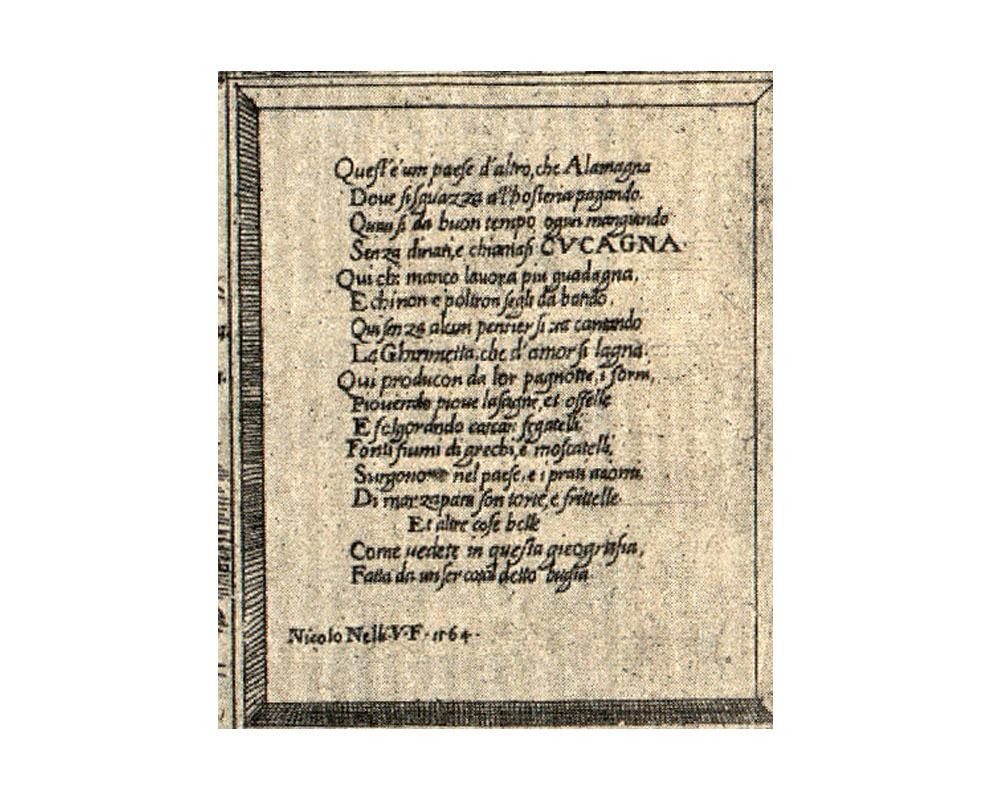 Quest'è un paese d'altro, che Alamagna
Doue si sguazza a l'hosteria pagando.
Quiui si da buon tempo ogun mangiando
Senza dinari, e chiamasi CVCAGNA.
Qui chi manco lauora piu guadagna,
E chi non e poltron segli da bando,
Qui senza alcun pensier si cantando
La che d'amor si lagna.
Qui producon da lor pagnotte, i forni,
Piouendo pioue lasagne, et offelle
E folgorando cascan fegatelli,
Fonti fiumi di grechi, e moscatelli,
Surgono nel paese, e i prati
Di marzapani son torte, e frittelle
Et altre cose belle
Come uedete in questa gieografia,
Fatta da un ser cotal detto bugia.
Nicolo Nelli V·F· 1564·